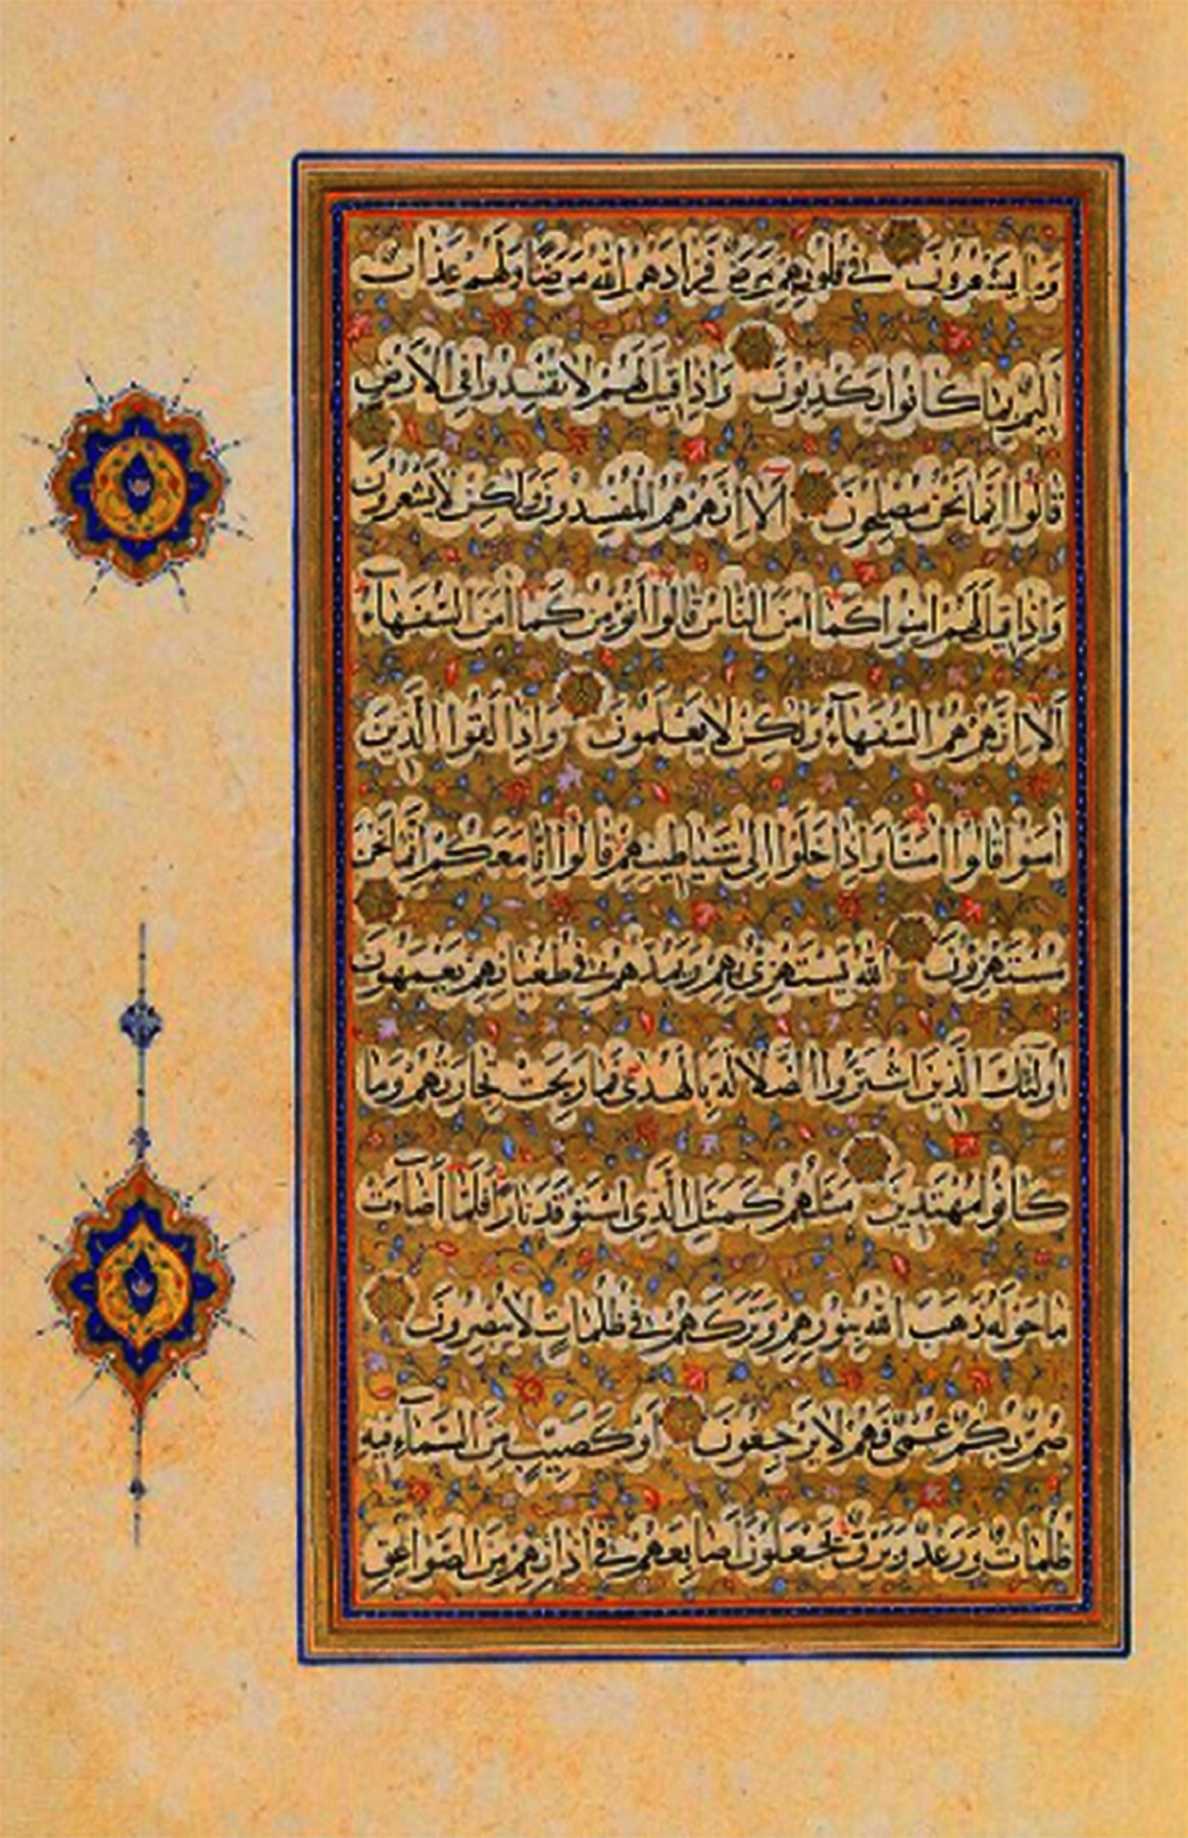 وَمَا يَشْعُرُونَ فِي قُلُوبِهِمْ مَرَضٌ فَزَادَهُمُ اللَّهُ مَرَضًا وَلَهُمْ عَذَابٌ
أَلِيمٌ بِمَا كَانُوا يَكْذِبُونَ وَإِذَا قِيلَ لَهُمْ لَا تُفْسِدُوا فِي الْأَرْضِ
قَالُوا إِنَّمَا نَحْنُ مُصْلِحُونَ أَلَا إِنَّهُمْ هُمُ الْمُفْسِدُونَ وَلَكِنْ لَا يَشْعُرُونَ
وَإِذَا قِيلَ لَهُمْ امِنُوا كَمَا امَنَ النَّاسُ قَالُوا أَنُؤْمِنُ كَمَا امَنَ السُّفَهَاءُ
أَلَا إِنَّهُمْ هُمُ السُّفَهَاءُ وَلَكِنْ لَا يَعْلَمُونَ وَإِذَا لَقُوا الَّذِينَ
امَنُوا قَالُوا امَنَّا وَإِذَا خَلَوْا إِلَى شَيَاطِينِهِمْ قَالُوا إِنَّا مَعَكُمْ إِنَّمَا نَحْنُ
مُسْتَهْزِؤُنَ اللَّهُ يَسْتَهْزِئُ بِهِمْ وَيَمُدُّهُمْ فِي طُغْيَانِهِمْ يَعْمَهُونَ
أُولَئِكَ الَّذِينَ اشْتَرَوُا الضَّلَالَةَ بِالْهُدَى فَمَا رَبِحَتْ تِجَارَتُهُمْ وَمَا
كَانُوا مُهْتَدِينَ مَثَلُهُمْ كَمَثَلِ الَّذِي اسْتَوْقَدَ نَارًا فَلَمَّا أَضَاءَتْ
مَا حَوْلَهُ ذَهَبَ اللَّهُ بِنُورِهِمْ وَتَرَكَهُمْ فِي ظُلُمَاتٍ لَا يُبْصِرُونَ
صُمٌّ بُكْمٌ عُمْيٌ فَهُمْ لَا يَرْجِعُونَ أَوْ كَصَيِّبٍ مِنَ السَّمَاءِ فِيهِ
ظُلُمَاتٌ وَرَعْدٌ وَبَرْقٌ يَجْعَلُونَ أَصَابِعَهُمْ فِي اذَانِهِمْ مِنَ الصَّوَاعِقِ